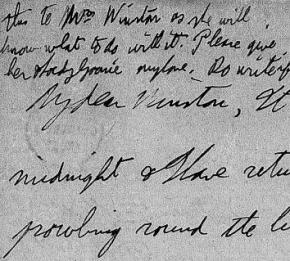 this to Mrs Winston as she will
know what to do with it. Please give
her & Lady Gracie my love. Do write
My dear Winston, It
midnight & I have retu
prowling round the li